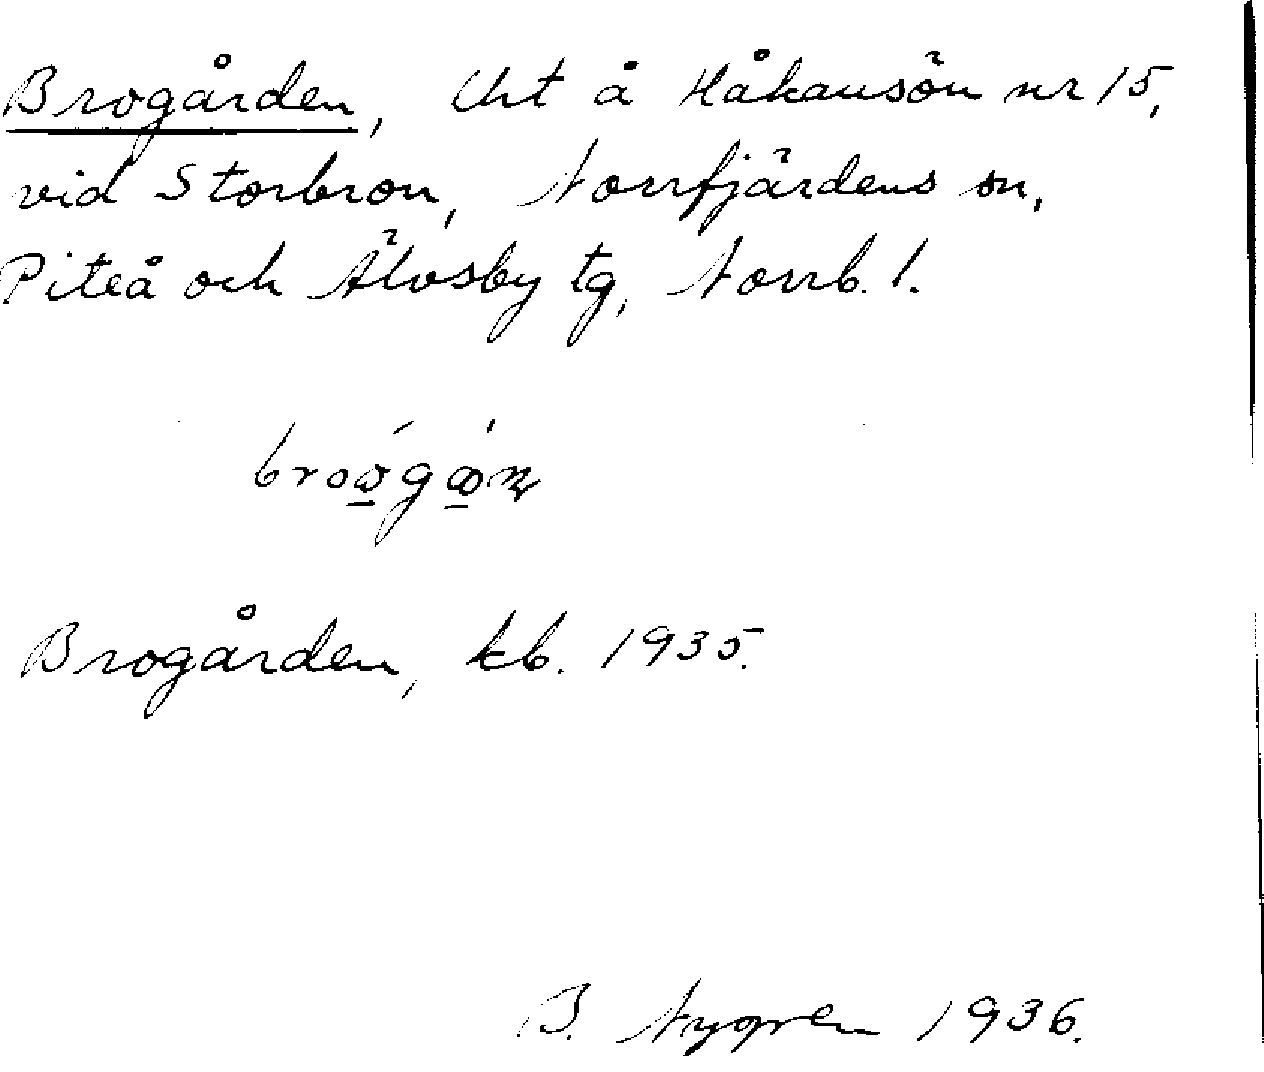 Brogården, Uht å Håkansön nr 15,
vid Storbron, Norrfjärdens sn,
Piteå och Älvsby tg, Norrb. l.
Brogården, kb. 1935.
B. Nygren 1936.